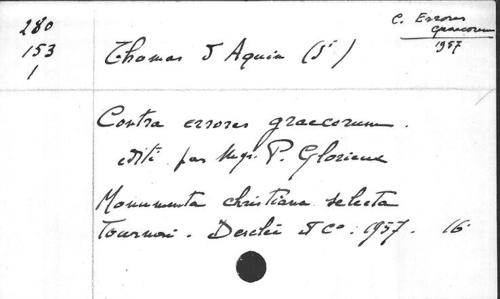 280
153
1
C. Errores
graecorum
1957
Thomas d'Aquin (St)
Contra errores graecorum.
édité par Mgr. P. Glorieux
Monumenta christiana selecta
Tournai. Desclée et Co. 1957. 16